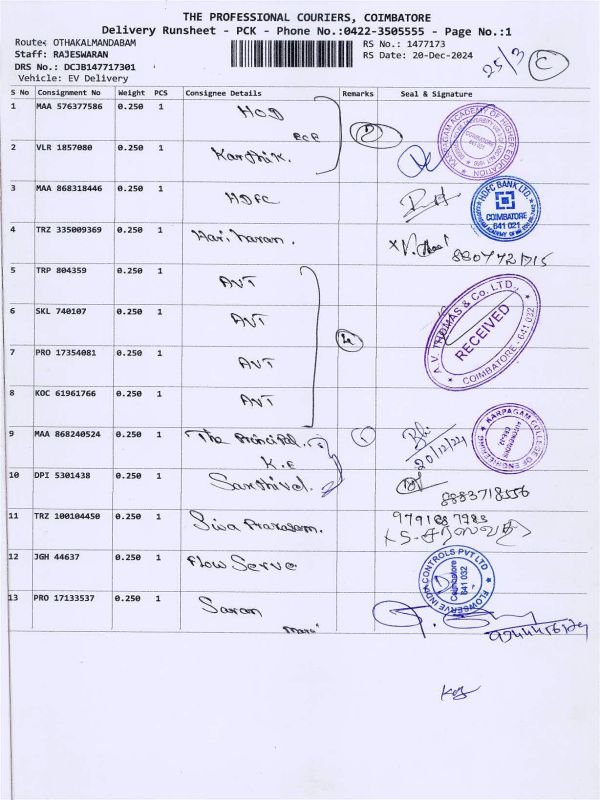 THE PROFESSIONAL COURIERS, COIMBATORE
Delivery Runsheet - PCK - Phone No.:0422-3505555 - Page No.:1
Route: OTHAKALMANDABAM
RS No.: 1477173
Staff: RAJESWARAN
RS Date: 20-Dec-2024
25/3
C
DRS No.: DCJB147717301
Vehicle: EV Delivery
S No Consignment No Weight PCS Consignee Details Remarks Seal & Signature
1 MAA 576377586 0.250 1 HOD
ECE
2 VLR 1857080 0.250 1 Karthik.
KARPAGAM ACADEMY OF HIGHER EDUCATION
COIMBATORE
641 021
3 MAA 868318446 0.250 1 HDFC
HDFC BANK LTD.
COIMBATORE
641 021
4 TRZ 335009369 0.250 1 Hari haran.
8807721715
5 TRP 804359 0.250 1 AVT
6 SKL 740107 0.250 1 AVT
7 PRO 17354081 0.250 1 AVT
8 KOC 61961766 0.250 1 AVT
A.V. THOMAS & Co. LTD.,
RECEIVED
COIMBATORE - 641 032
9 MAA 868240524 0.250 1 The Principal.
K.E
20/12/24
KARPAGAM COLLEGE OF ENGINEERING
10 DPI 5301438 0.250 1 Sakthivel.
8883718556
11 TRZ 100104450 0.250 1 Siva Prakasam.
12 JGH 44637 0.250 1 Flow Serve
FLOWSERVE INDIA CONTROLS PVT LTD
Coimbatore
641 032
13 PRO 17133537 0.250 1 Saran